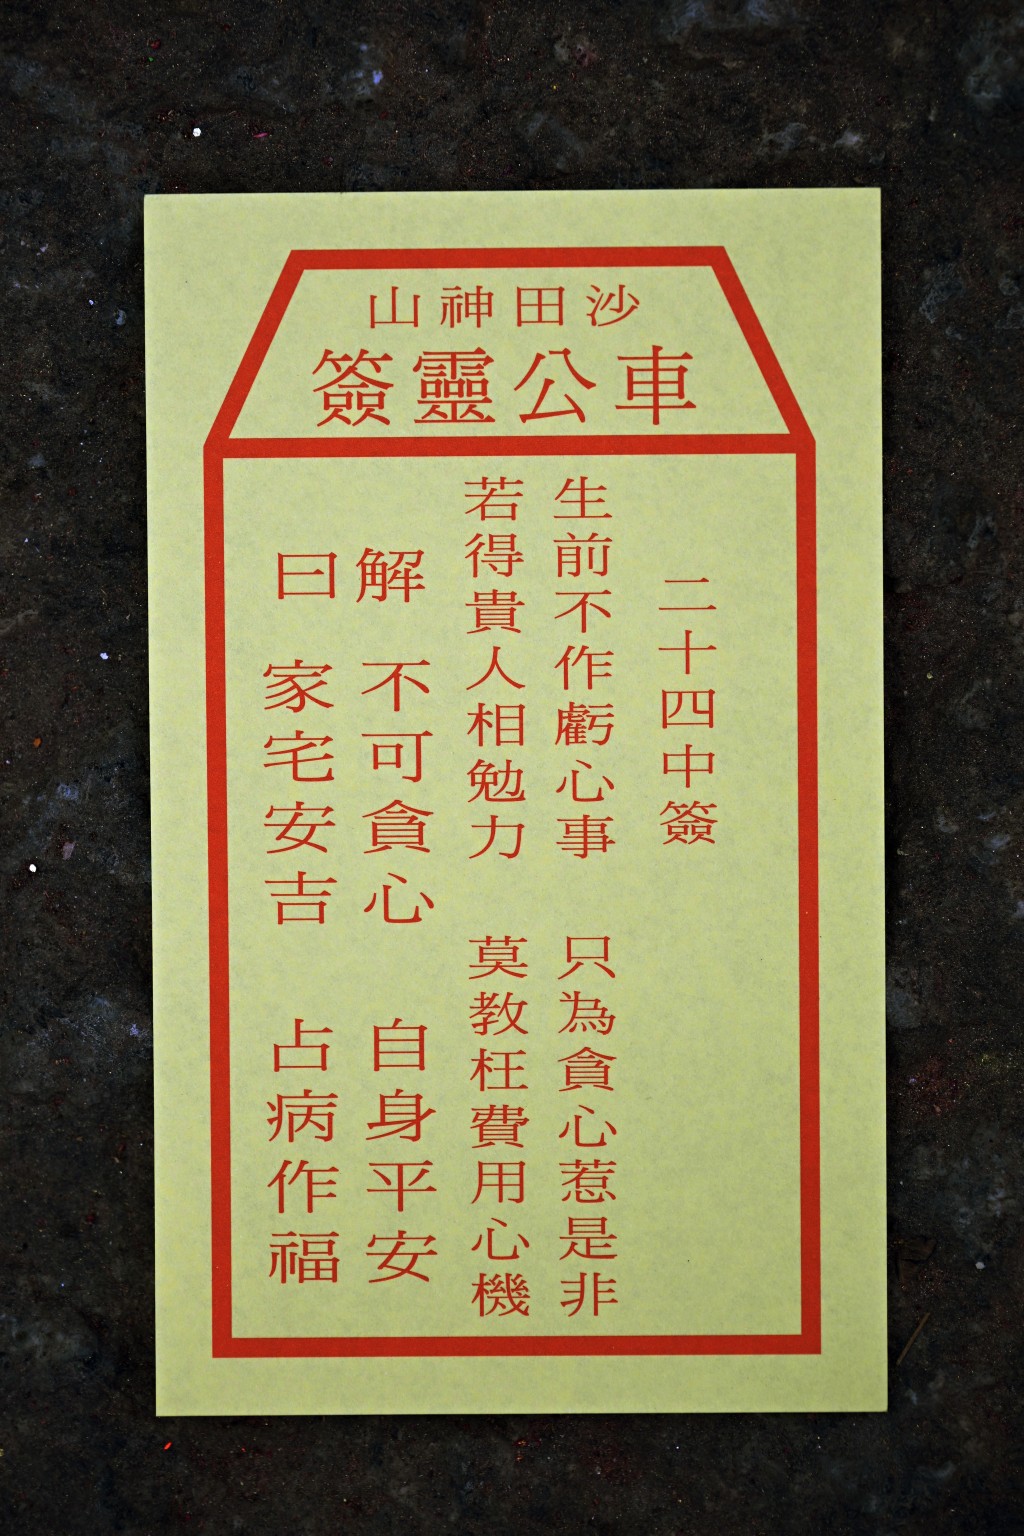 沙田神山
車公靈簽
二十四中簽
生前不作虧心事 只為貪心惹是非
若得貴人相勉力 莫教枉費用心機
解 不可貪心 自身平安
曰 家宅安吉 占病作福